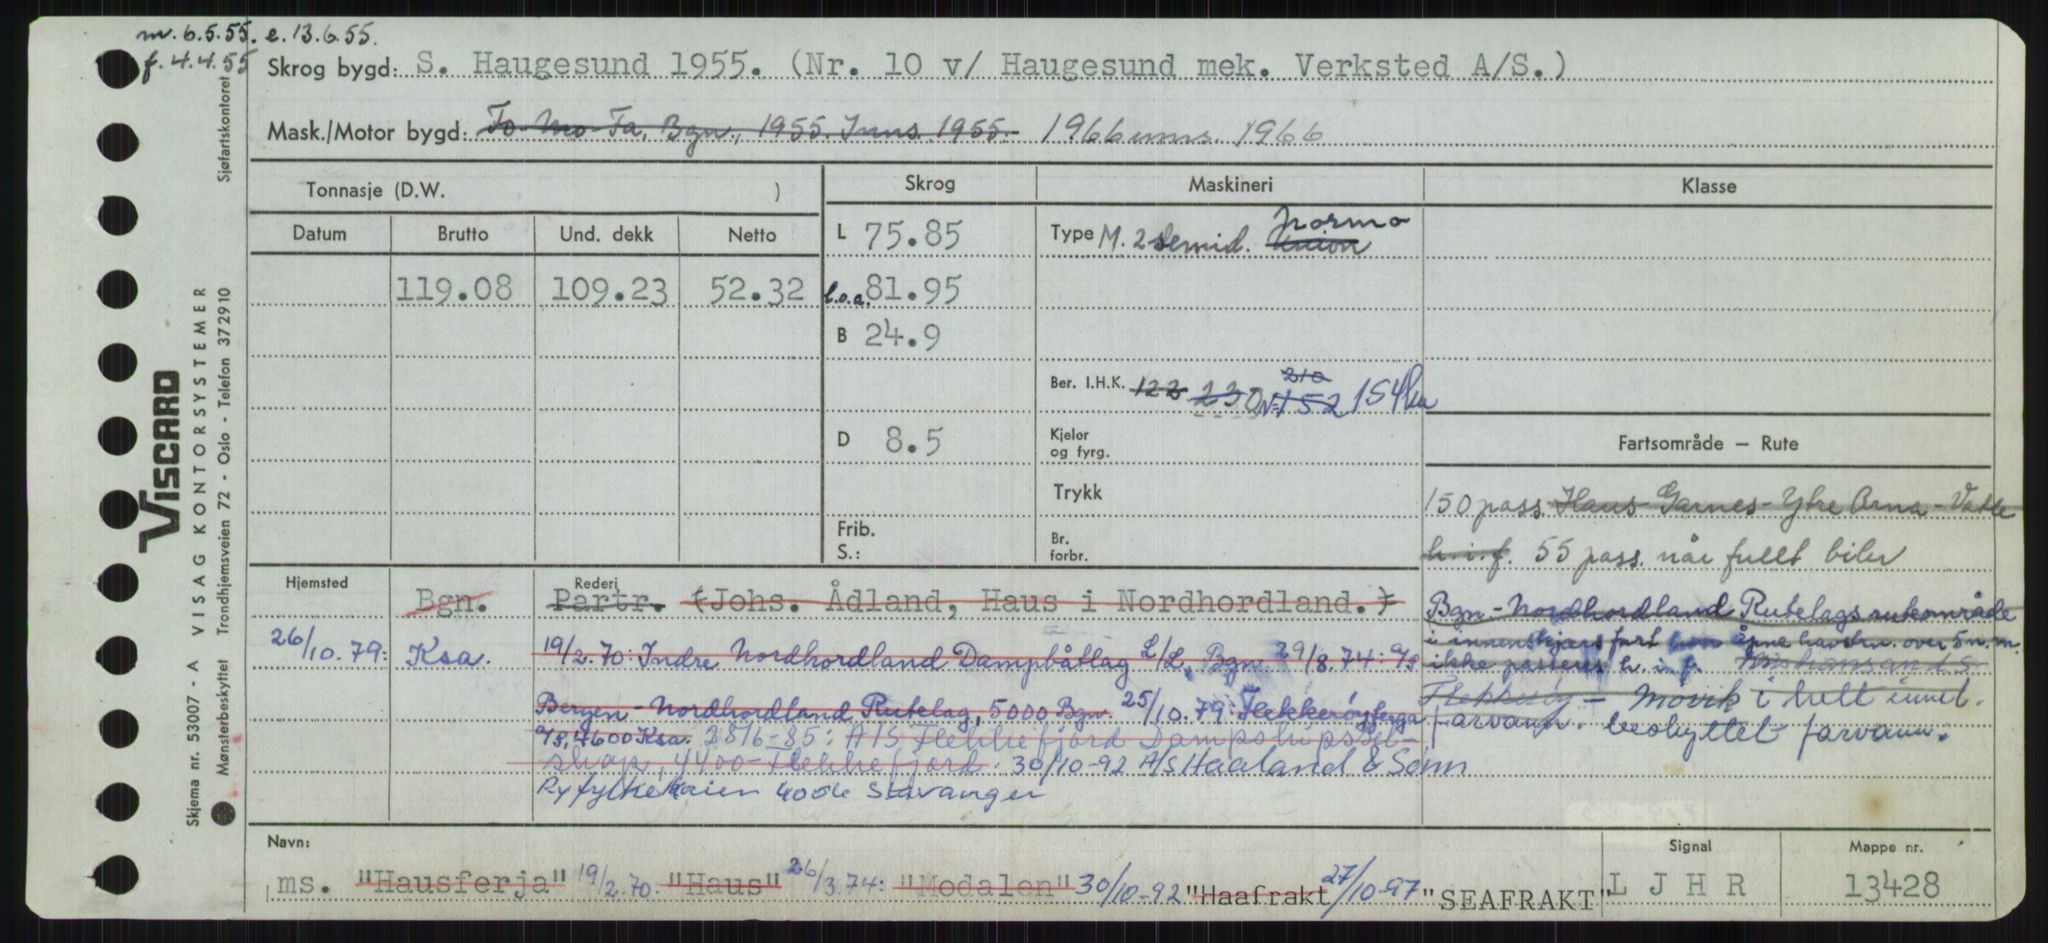 m. 6.5.55. e. 13.6.55.
f. 4.4.55
Skrog bygd: S. Haugesund 1955. (Nr. 10 v/ Haugesund mek. Verksted A/S.)
Mask./Motor bygd: Fo-Mo-Fa, Bgn., 1955. Inns. 1955. 1966 inns. 1966
Tonnasje (D.W. )
Skrog
Maskineri
Klasse
Datum Brutto Und. dekk Netto
L 75.85
Type M. 2 s emid. Union Normo
119.08 109.23 52.32
l.o.a. 81.95
B 24.9
Ber. I.H.K. 122 230 210 152 154
D 8.5
Kjeler og fyrg.
Fartsområde – Rute
Trykk
150 pass. Haus-Garnes-Ytre Arna-Vatle
Frib. S.:
Br. forbr.
h.i.f. 55 pass. når fullt biler
Hjemsted
Rederi
Bgn. Partr. (Johs. Ådland, Haus i Nordhordland.)
Bgn-Nordhordland Rutelags ruteområde
i innenskjærs fart åpne havstr. over 5 n.m.
26/10.79: Ksa. 19/2.70: Indre Nordhordland Dampbåtlag L/L, Bgn. 29/8.74: A/S
ikke passeres h. i. f. Kristiansand S.
Bergen-Nordhordland Rutelag, 5000 Bgn. 25/10.79: Flekkerøyferga
Flekkerøy – Møvik i helt innel.
farvann. beskyttet farvann.
A/S, 4600 Ksa. 28/6-85: A/S Flekkefjord Dampskipssel-
skap, 4400-Flekkefjord. 30/10-92 A/S Haaland & Sønn
Ryfylkekaien 4006 Stavanger
Navn:
Signal
Mappe nr.
ms. "Hausferja" 19/2.70: "Haus" 26/3.74: "Modalen" 30/10-92 "Haafrakt 27/10-97 "SEAFRAKT"
L J H R
13428
VISCARD
Skjema nr. 53007 - A VISAG KONTORSYSTEMER
Mønsterbeskyttet Trondhjemsveien 72 - Oslo - Telefon 37 29 10
Sjøfartskontoret